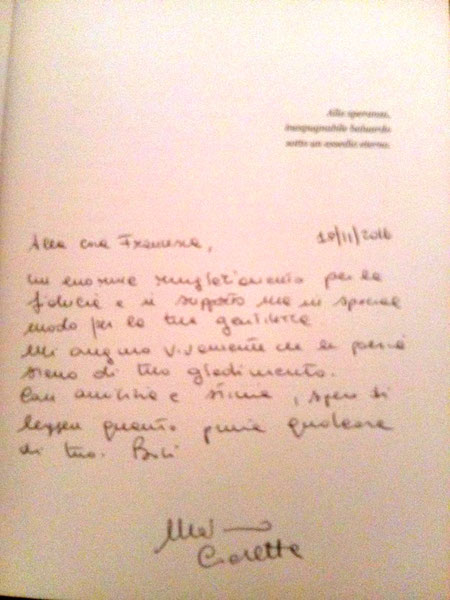 Alla speranza,
inespugnabile baluardo
sotto un assedio eterno.
Alla cara Francesca, 18/11/2016
un enorme ringraziamento per la
fiducia e il supporto ma in special
modo per la tua gentilezza
Mi auguro vivamente che le poesie
siano di tuo gradimento.
Con amicizia e stima, spero di
leggere quanto prima qualcosa
di tuo. Baci